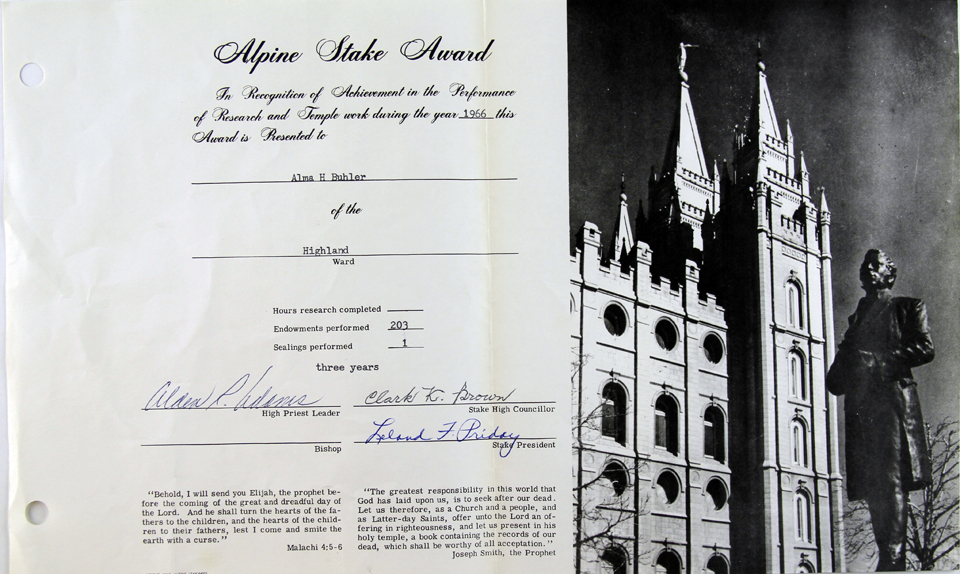 Alpine Stake Award
In Recognition of Achievement in the Performance
of Research and Temple work during the year 1966 this
Award is Presented to
Alma H Buhler
of the
Highland
Ward
Hours research completed
Endowments performed 203
Sealings performed 1
three years
Alden R. Adams
High Priest Leader
Clark K. Brown
Stake High Councillor
Bishop
Leland F. Priday
Stake President
"Behold, I will send you Elijah, the prophet be-
fore the coming of the great and dreadful day of
the Lord. And he shall turn the hearts of the fa-
thers to the children, and the hearts of the child-
ren to their fathers, lest I come and smite the
earth with a curse."
Malachi 4:5-6
"The greatest responsibility in this world that
God has laid upon us, is to seek after our dead.
Let us therefore, as a Church and a people, and
as Latter-day Saints, offer unto the Lord an of-
fering in righteousness, and let us present in his
holy temple, a book containing the records of our
dead, which shall be worthy of all acceptation."
Joseph Smith, the Prophet